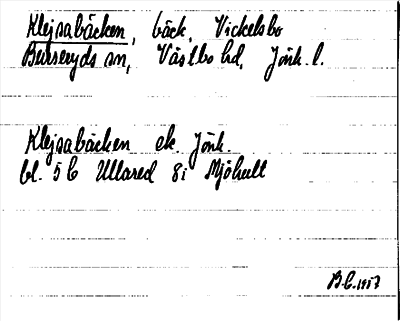 Klejsabäcken, bäck, Vickelsbo
Burseryds sn, Västbo hd, Jönk. l.
Klejsabäcken ek. Jönk.
bl. 5 b Ullared 8i Mjöhult
B.C. 1957